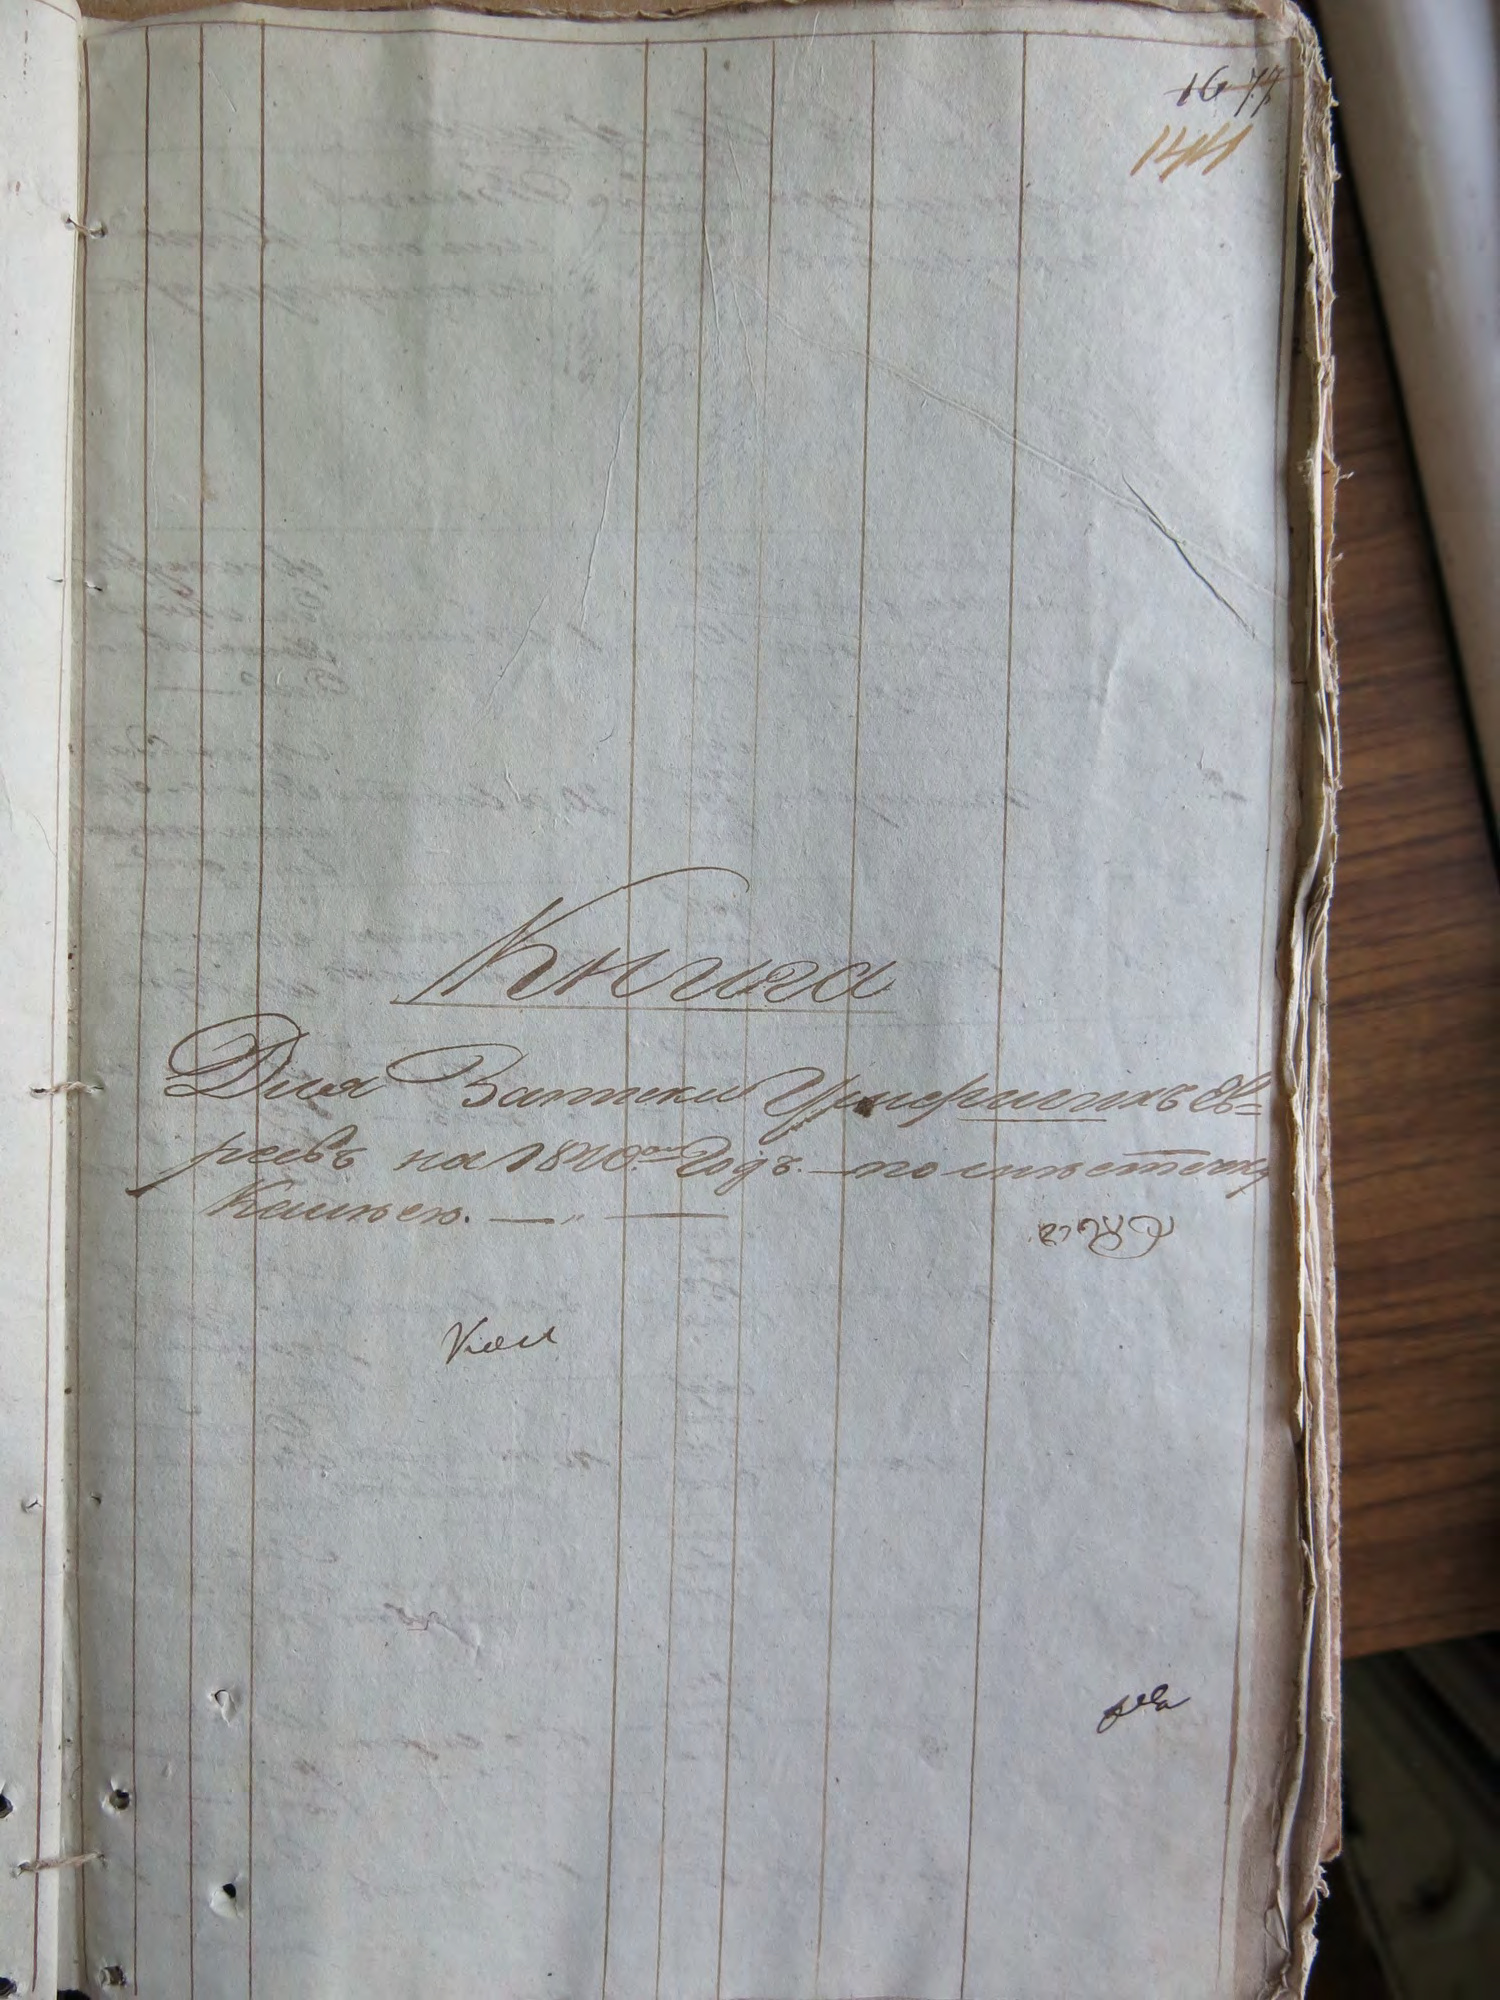 16 77
144
Книга
Для Записки Умершихъ Ев=
реевъ на 1840ой Годъ. по мѣстечку